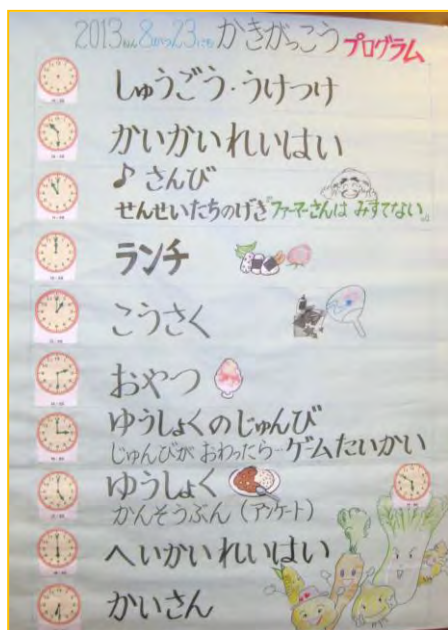 2013ねん8がつ23にち かきがっこう プログラム
しゅうごう・うけつけ
かいかいれいはい
♪さんび
せんせいたちのげき"ファーマーさんは みすてない"
ランチ
こうさく
おやつ
ゆうしょくのじゅんび
じゅんびが おわったら…ゲームたいかい
ゆうしょく
かんそうぶん(アンケート)
へいかいれいはい
かいさん